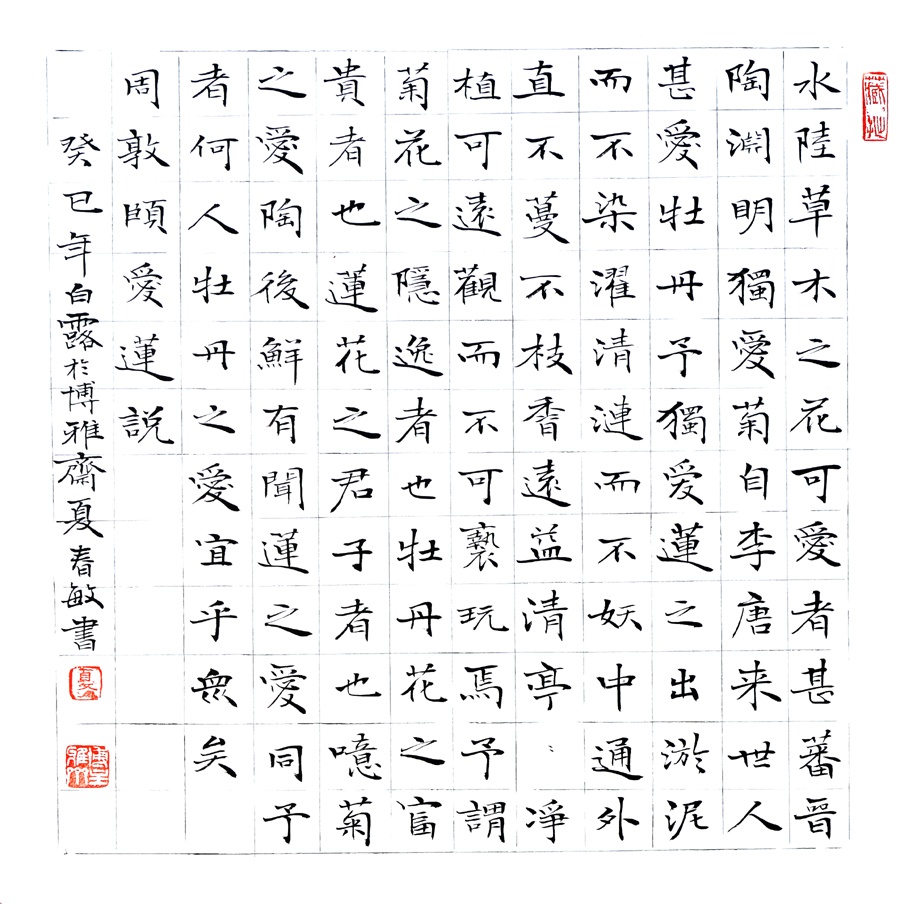 水陸草木之花可愛者甚蕃晉
陶淵明獨愛菊自李唐来世人
甚愛牡丹予獨爱蓮之出淤泥
而不染濯清漣而不妖中通外
直不蔓不枝香遠益清亭〻凈
植可遠觀而不可褻玩焉予謂
菊花之隱逸者也牡丹花之富
貴者也蓮花之君子者也噫菊
之愛陶後鮮有聞蓮之愛同予
者何人牡丹之愛宜乎衆矣
周敦頤愛蓮説
癸巳年白露於博雅齋夏春敏書